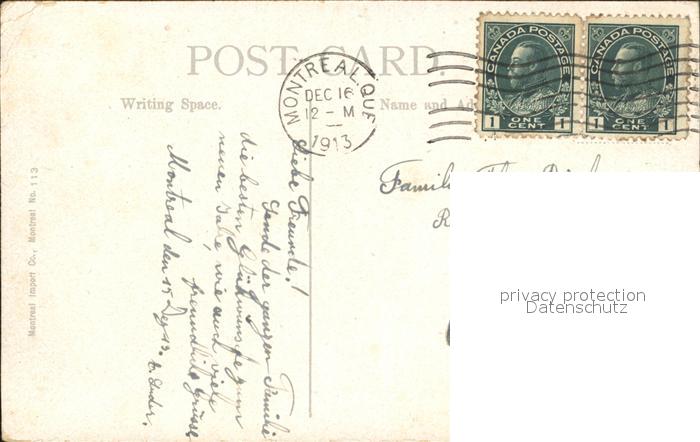 POST CARD.
CANADA POSTAGE
CANADA POSTAGE
1 ONE CENT 1
1 ONE CENT 1
MONTREAL, QUE
DEC 16
12 - M
1913
Writing Space.
Name and Ad
Familie
R
Liebe Freunde!
Sende der ganzen Familie
die besten Glückwünsche zum
neuen Jahre wie auch viele
freundliche Grüsse
Montreal den 15 Dez 13.
Montreal Import Co., Montreal No. 113
privacy protection
Datenschutz